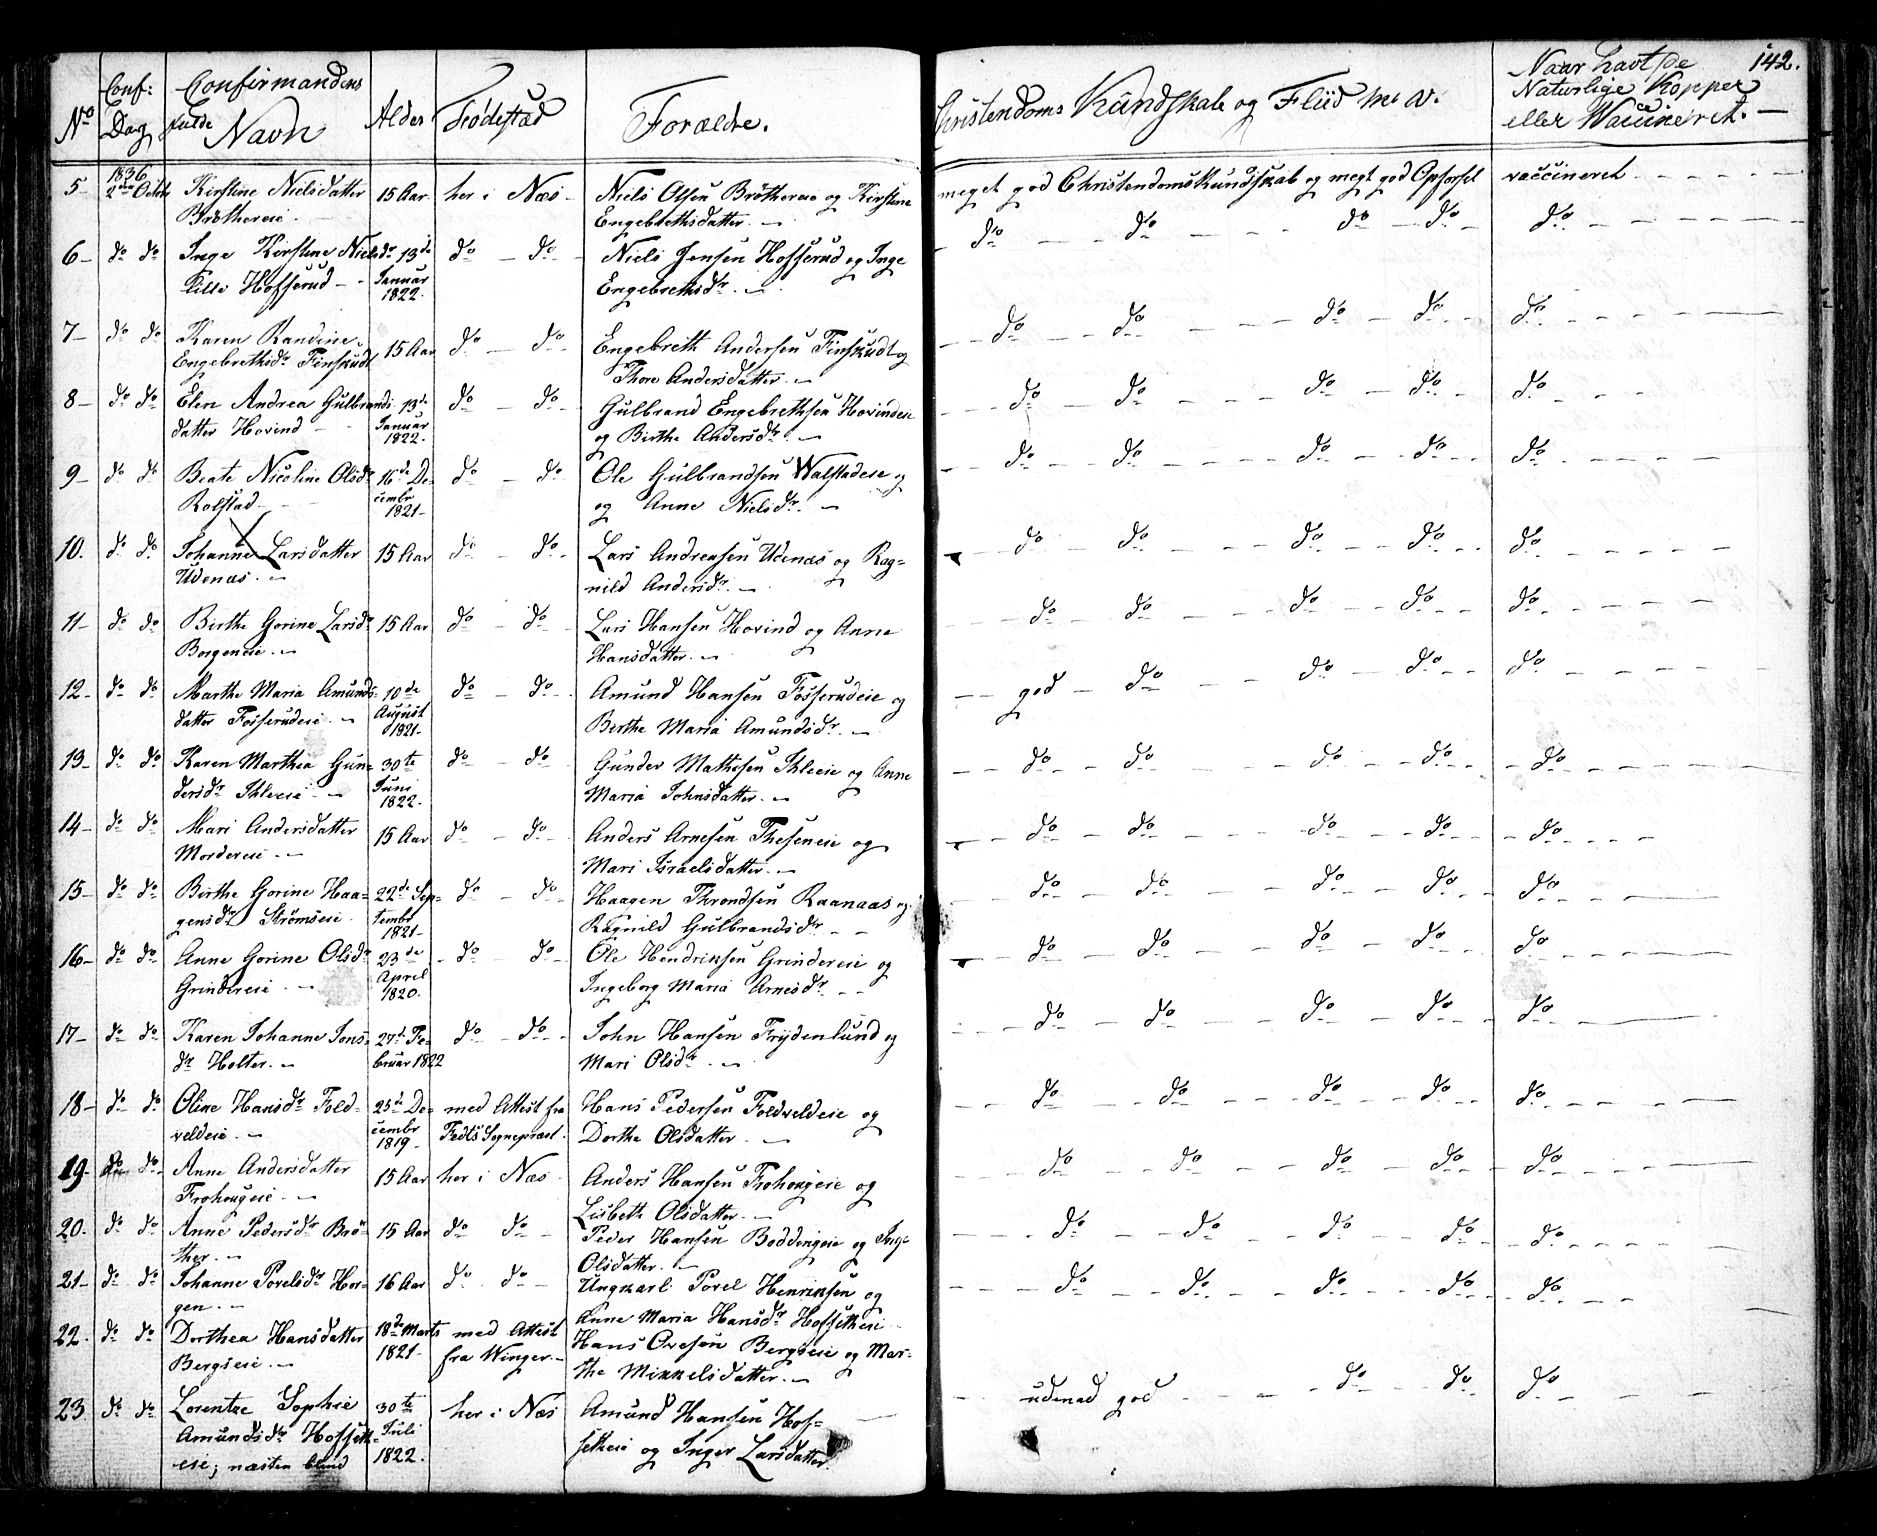 142.
No
Conf:
Dag
Confirmandens
fulde
Navn
Alder
Fødestæd
Forældre.
Christendoms Kundskab og Fliid m. v.
Naar havt de
Naturlige Kopper
eller Vaccineret. —
5 - 1836 2den Octob Kirstine Nielsdatter 15 Aar. her i Næs - Niels Olsen Brøthereie og Kirstine meget god Christendomskundskab og meget god Opførsel vaccineret
Brøthereie - Engebrethsdatter. -
do - do - do - do - do
6 - do do Inge Kirstine Nielsdr 13de do - do - Niels Jensen Hofserud og Inge
Hofserud - - Januar Engebrethsdr. -
1822.
do - do - do - do - do
7 - do do Karen Randine 15 Aar do - do - Engebreth Andersen Finskudt og
Engebrethsdr Finskudt Thore Andersdatter. -
do - do - do - do - do
8 - do do Elen Andrea Gulbrands 13de do - do - Gulbrand Engebrethsen Hovindeie
datter Hovind - Januar og Birthe Andersdr. -
1822.
do - do - do - do - do
9 - do do Beate Nicoline Olsdr 16de De- do - do Ole Gulbrandsen Walstadeie og
Rolstad - cembr og Anne Nielsdr. -
1821 -
do - do - do - do - do
10. do do Johanne Larsdatter 15 Aar do - do - Lars Andreasen Udenæs og Rag=
Udenæs. - nild Andersdr. -
do - do - do - do - do
11 - do do Birthe Gorine Larsdr 15 Aar do - do - Lars Hansen Hovind og Anne
Borgeneie. - Hansdatter. -
do - do - do - do - do
12 - do do Marthe Maria Amunds- 10de do - do - Amund Hansen Fosserudeie og
datter Fosserudeie. - August Birthe Maria Amundsdr. -
1821 -
god - do - do - do - do
13 - do do Karen Marthea Gun= 30te do - do - Gunder Mathesen Ihleeie og Anne
dersdr Ihleeie - Juni Maria Johnsdatter. -
1822.
do - do - do - do - do
14 - do do Mari Andersdatter 15 Aar do - do - Anders Arnesen Theseneie og
Mordereie. - Mari Israelsdatter. -
do - do - do - do - do
15 - do do Birthe Gorine Haa= 22de Sep- do - do Haagen Throndsen Raanaas og
gensdr Strømseie. tembr Ragnild Gulbrandsdr - -
1821 -
do - do - do - do - do
16 - do do Anne Gorine Olsdr 23de do - do - Ole Hendriksen Grindereie og
Grindereie. - April Ingeborg Maria Arnesdr. - -
1820.
do - do - do - do - do
17 - do do Karen Johanne Jons- 27de Fe- do - do - John Hansen Frydenlund og
dr Holter. - bruar 1822 Mari Olsdr. -
do - do - do - do - do
18 - do do Oline Hansdr Fold- 25de De- med Attest fra Hans Pedersen Foldveldeie og
veldeie. - cembr Fedts Sognepræst. Dorthe Olsdatter -
1819 -
do - do - do - do - do
19 - do do Anne Andersdatter 15 Aar her i Næs - Anders Hansen Frohougeie og
Frohougeie. - Lisbeth Olsdatter. -
do - do - do - do - do
20. do do Anne Pedersdr Brø= 15 Aar do do - Peder Hansen Boddingeie og Inge
ther. - Olsdatter. -
do - do - do - do - do
21 - do do Johanne Povelsdr Hor- 16 Aar do do - Ungkarl Povel Henriksen og
gen. - Anne Maria Hansdr Hofsetheie
do - do - do - do - do
22. do do Dorthea Hansdatter 18de Marts med Attest Hans Ovesen Bergseie og Mar-
Bergseie. - 1821 - fra Winger. - the Mikkelsdatter. -
23 do do Lorentze Sophie 30te her i Næs Amund Hansen Hof=
Amundsdr Hofseth- Juli setheie og Inger Larsdatter.
eie; næsten blind 1822.
udenad god - do - do - do